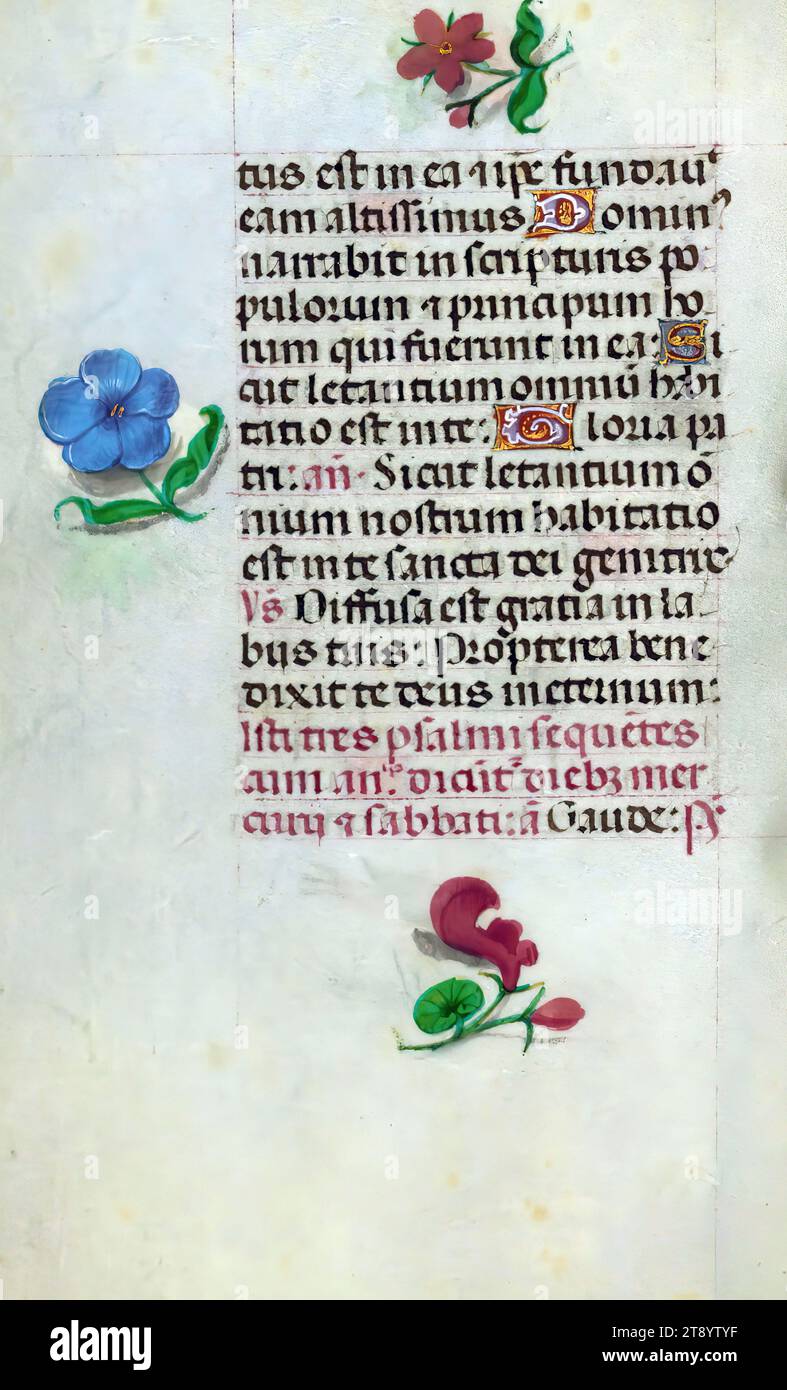 tus est in ea ⁊ ip̄e fundauͭ
eam altissimus Dominꝰ
narrabit in scripturis po
pulorum ⁊ principum ho
rum qui fuerunt in ea: Si
cut letantium omniū habi
tatio est in te: Gloria pa
tri: an̄. Sicut letantium ō
nium nostrum habitatio
est in te sancta dei genitrix
Vs̄ Diffusa est gratia in la
bijs tuis: Propterea bene
dixit te deus in eternum:
Isti tres psalmi sequētes
cum an.ͥˢ dicūt᷑ diebꝫ mer
curij ⁊ sabbati: ā Gaude: Ps̄
alamy
Image ID: 2T8YTYF
www.alamy.com